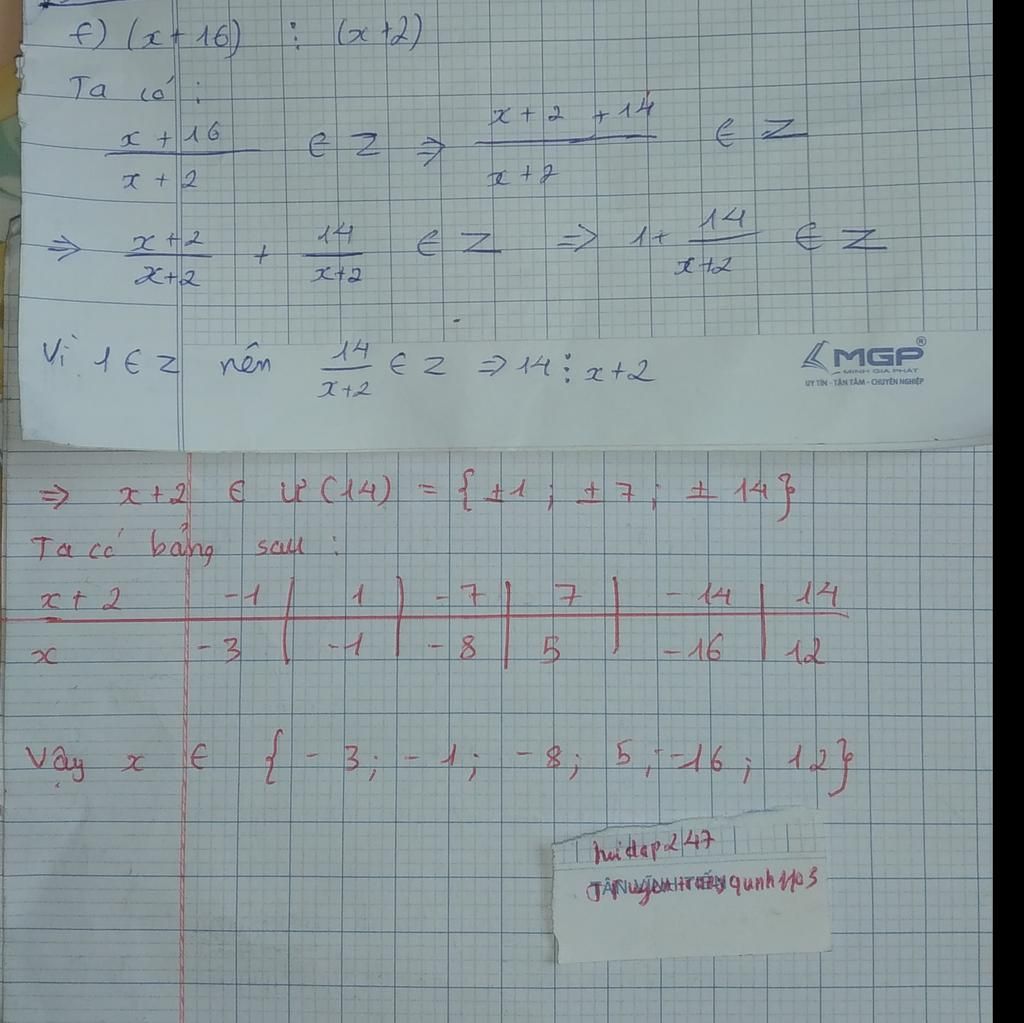 f) (x+16) ⋮ (x+2)
Ta có:
x + 16 / x + 2 ∈ Z ⇒ x + 2 + 14 / x + 2 ∈ Z
⇒ x+2 / x+2 + 14 / x+2 ∈ Z ⇒ 1 + 14 / x+2 ∈ Z
Vì 1 ∈ Z nên 14 / x+2 ∈ Z ⇒ 14 ⋮ x+2
MGP®
MINH GIA PHÁT
UY TÍN - TẬN TÂM - CHUYÊN NGHIỆP
⇒ x+2 ∈ Ư(14) = {±1; ±7; ±14}
Ta có bảng sau:
x+2 -1 1 -7 7 -14 14
x -3 -1 -8 5 -16 12
Vậy x ∈ {-3; -1; -8; 5; -16; 12}
hoidap247